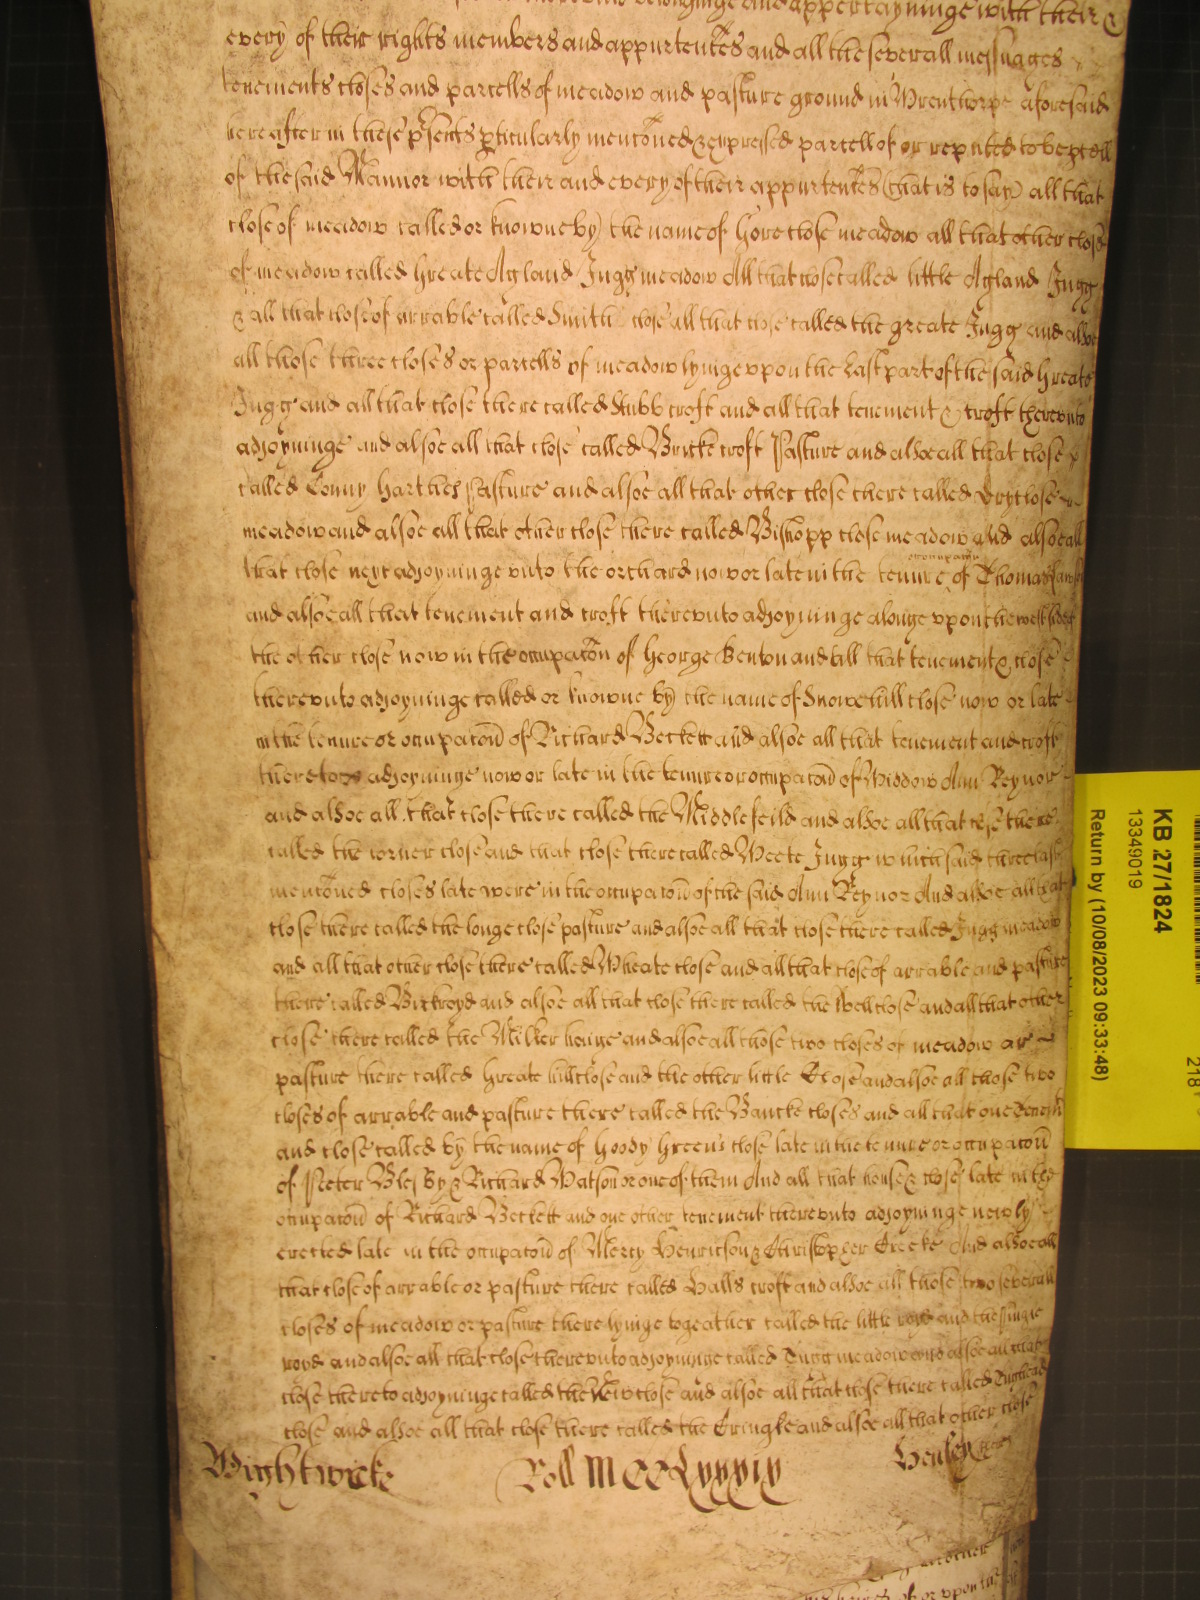 belonginge and appertayninge with their &
every of their rights members and appurtencs and all the severall messuages
tenements closes and parcells of meadow and pasture ground in Wrenthorpe aforesaid
hereafter in these psents pticularly menconed & expressed parcell of or reputed to be pcell
of the said Mannor with their and every of their appurtencs (that is to say) all that
close of meadow called or knowne by the name of Hore close meadow all that other close
of meadow called Greate Agland Jugg meadow All that close called little Agland Jugg
& all that close of arrable called Smith close all that close called the greate Jugg and alsoe
all those three closes or parcells of meadow lyinge upon the East part of the said Greate
Jugg and all that close there called Stubb croft and all that tenement & croft therevnto
adjoyninge and alsoe all that close called Bricke croft Pasture and alsoe all that close
called Conny Pasture and alsoe all that other close there called Dryclose
meadow and alsoe all that other close there called Bishopp close meadow and alsoe all
that close next adjoyninge vnto the orchard now or late in the tenure or occupacon of Thomas
and alsoe all that tenement and croft therevnto adjoyninge alonge vpon the west side of
the other close now in the occupacon of George Benton and all that tenement & close
therevnto adjoyninge called or knowne by the name of Snowe hill close now or late
in the tenure or occupacon of Richard Beckett and alsoe all that tenement and croft
thereto adjoyninge now or late in the tenure or occupacon of Widdow Ann Reynor
and alsoe all that close there called the Middlefeild and alsoe all that close there
called the corner close and that close there called Weete Jugg which said three last
menconed closes late were in the occupacon of the said Ann Reynor And alsoe all that
close there called the longe close pasture and alsoe all that close there called Jugg meadow
and all that other close there called Wheate close and all that close of arrable and pasture
there called Birkroyd and alsoe all that close there called the Well close and all that other
close there called the Milker and alsoe all those two closes of meadow or
pasture there called Greate hill close and the other little Close and alsoe all those two
closes of arrable and pasture there called the Bancke closes and all that one Tenemt
and close called by the name of Goody Greens close late in the tenure or occupacon
of Peter Blesby & Richard Watson or one of them And all that house & close late in the
occupacon of Richard Beckett and one other tenement therevnto adjoyninge newly
erected late in the occupacon of Mercy Henricson & Christopher Creeke And alsoe all
that close of arrable or pasture there called Halls croft and alsoe all those two severall
closes of meadow or pasture there lyinge togeather called the little royd and the
royd and alsoe all that close therevnto adjoyninge called Tugg meadow and alsoe all that
close thereto adjoyninge called the New close and alsoe all that close there called
close and alsoe all that close there called the Cringle and alsoe all that other close
Wightwicke Roll MCCLxxxix Henley
KB 27/1824
13349019
Return by (10/08/2023 09:33:48)
218
or vpon